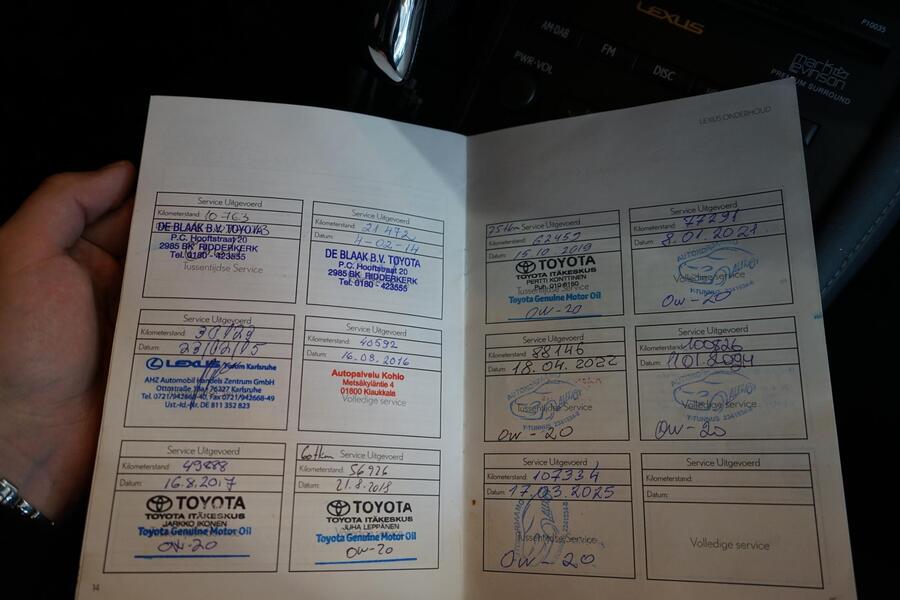 LEXUS
P10035
AM·DAB
FM
DISC
PWR·VOL
mark levinson
PREMIUM SURROUND
LEXUS ONDERHOUD
Service Uitgevoerd
Kilometerstand: 10 763
DE BLAAK B.V. TOYOTA
P.C. Hooftstraat 20
2985 BK RIDDERKERK
Tel. 0180 - 423555
Tussentijdse Service
Service Uitgevoerd
Kilometerstand: 21 472
Datum: 4-02-14
DE BLAAK B.V. TOYOTA
P.C. Hooftstraat 20
2985 BK RIDDERKERK
Tel. 0180 - 423555
Service Uitgevoerd
Kilometerstand:
Datum: 23/02/15
LEXUS Forum Karlsruhe
AHZ Automobil Handels Zentrum GmbH
Ottostraße 18a 76327 Karlsruhe
Tel. 0721/942668-40, Fax 0721/942668-49
Ust.-Id.-Nr. DE 811 352 823
Service Uitgevoerd
Kilometerstand: 40592
Datum: 16.08.2016
Autopalvelu Kohlo
Metsäkyläntie 4
01800 Klaukkala
Volledige service
Service Uitgevoerd
Kilometerstand: 49888
Datum: 16.8.2017
TOYOTA
TOYOTA ITÄKESKUS
JARKKO IKONEN
Toyota Genuine Motor Oil
0W-20
60tkm Service Uitgevoerd
Kilometerstand: 56926
Datum: 21.8.2018
TOYOTA
TOYOTA ITÄKESKUS
JUHA LEPPÄNEN
Toyota Genuine Motor Oil
0W-20
14
Service Uitgevoerd
Kilometerstand: 62457
Datum: 15 10 2019
TOYOTA
TOYOTA ITÄKESKUS
PERTTI KONTTINEN
Tussentijdse service
Toyota Genuine Motor Oil
0W-20
Service Uitgevoerd
Kilometerstand: 77291
Datum: 8.01.2021
Volledige service
0W-20
Service Uitgevoerd
Kilometerstand: 88146
Datum: 18.04.2022
Tussentijdse Service
0W-20
Service Uitgevoerd
Kilometerstand: 100826
Datum:
Volledige service
0W-20
Service Uitgevoerd
Kilometerstand: 107334
Datum: 17.03.2025
Tussentijdse Service
0W-20
Service Uitgevoerd
Kilometerstand:
Datum:
Volledige service